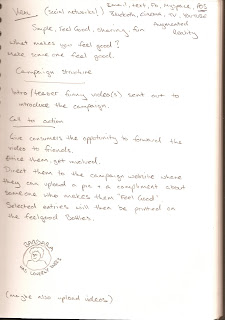 Viral (social networks) Email, text, Fb, Myspace, POS
Billboards, cinema, TV, Youtube
Augmented
Simple, Feel Good, Sharing, fun Reality
What makes you feel good?
Make someone feel good.
Campaign structure
Intro/teaser funny video(s) sent out to
introduce the campaign.
Call to action
Give customers the opportunity to forward the
video to friends.
Entice them, get involved.
Direct them to the campaign website where
they can upload a pic + a compliment about
someone who makes them 'Feel Good'
Selected entries will then be printed on
the feelgood Bottles.
BARBARA
HAS LOVELY
(maybe also upload videos)